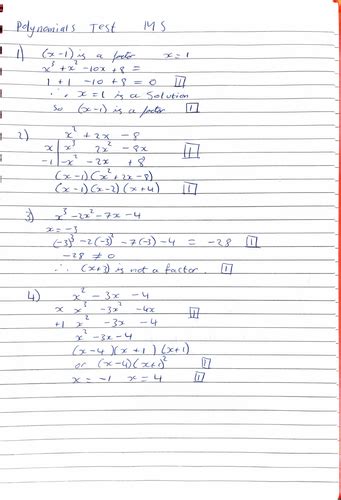 Polynomials Test MS
1) (x-1) is a factor x=1
x³+x²-10x+8=
1+1-10+8=0 [1]
∴ x=1 is a solution
So (x-1) is a factor [1]
2) x²+2x-8
x | x³ 2x² -8x [1]
-1 | -x² -2x +8
(x-1)(x²+2x-8)
(x-1)(x-2)(x+4) [1]
3) x³-2x²-7x-4
x=-3
(-3)³-2(-3)²-7(-3)-4 = -28 [1]
-28≠0
∴ (x+3) is not a factor. [1]
4) x²-3x-4
x x³ -3x² -4x [1]
+1 x² -3x -4
x²-3x-4
(x-4)(x+1)(x+1)
or (x-4)(x+1)² [1]
x=-1 x=4 [1]